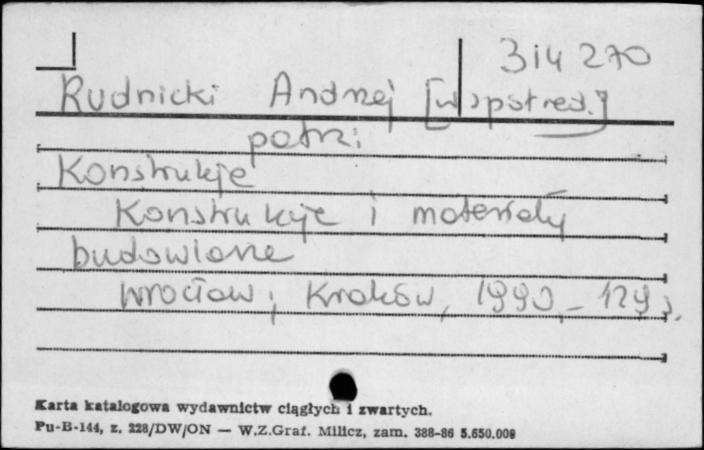 314 270
Rudnicki Andrzej [współred.]
patrz:
Konstrukcje
Konstrukcje i materiały
budowlane
Wrocław; Kraków, 1990,- 129 s.
Karta katalogowa wydawnictw ciągłych i zwartych.
Pu-B-144, z. 228/DW/ON — W.Z.Graf. Milicz, zam. 388-86 5.650.000